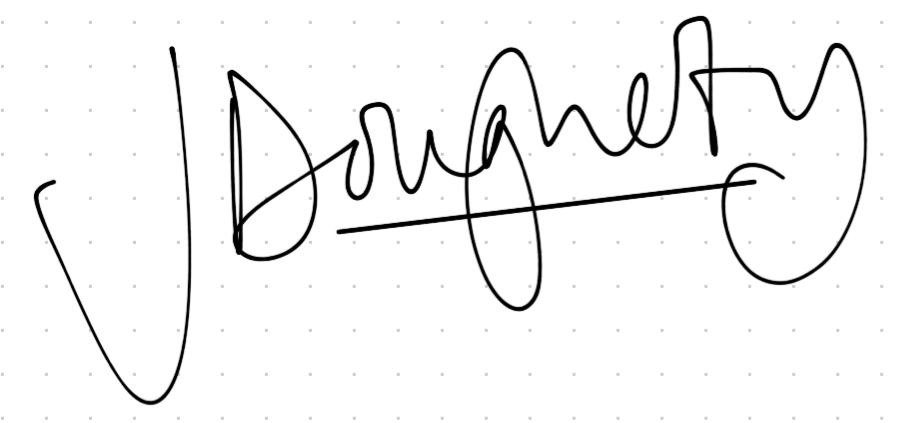 J Dougherty